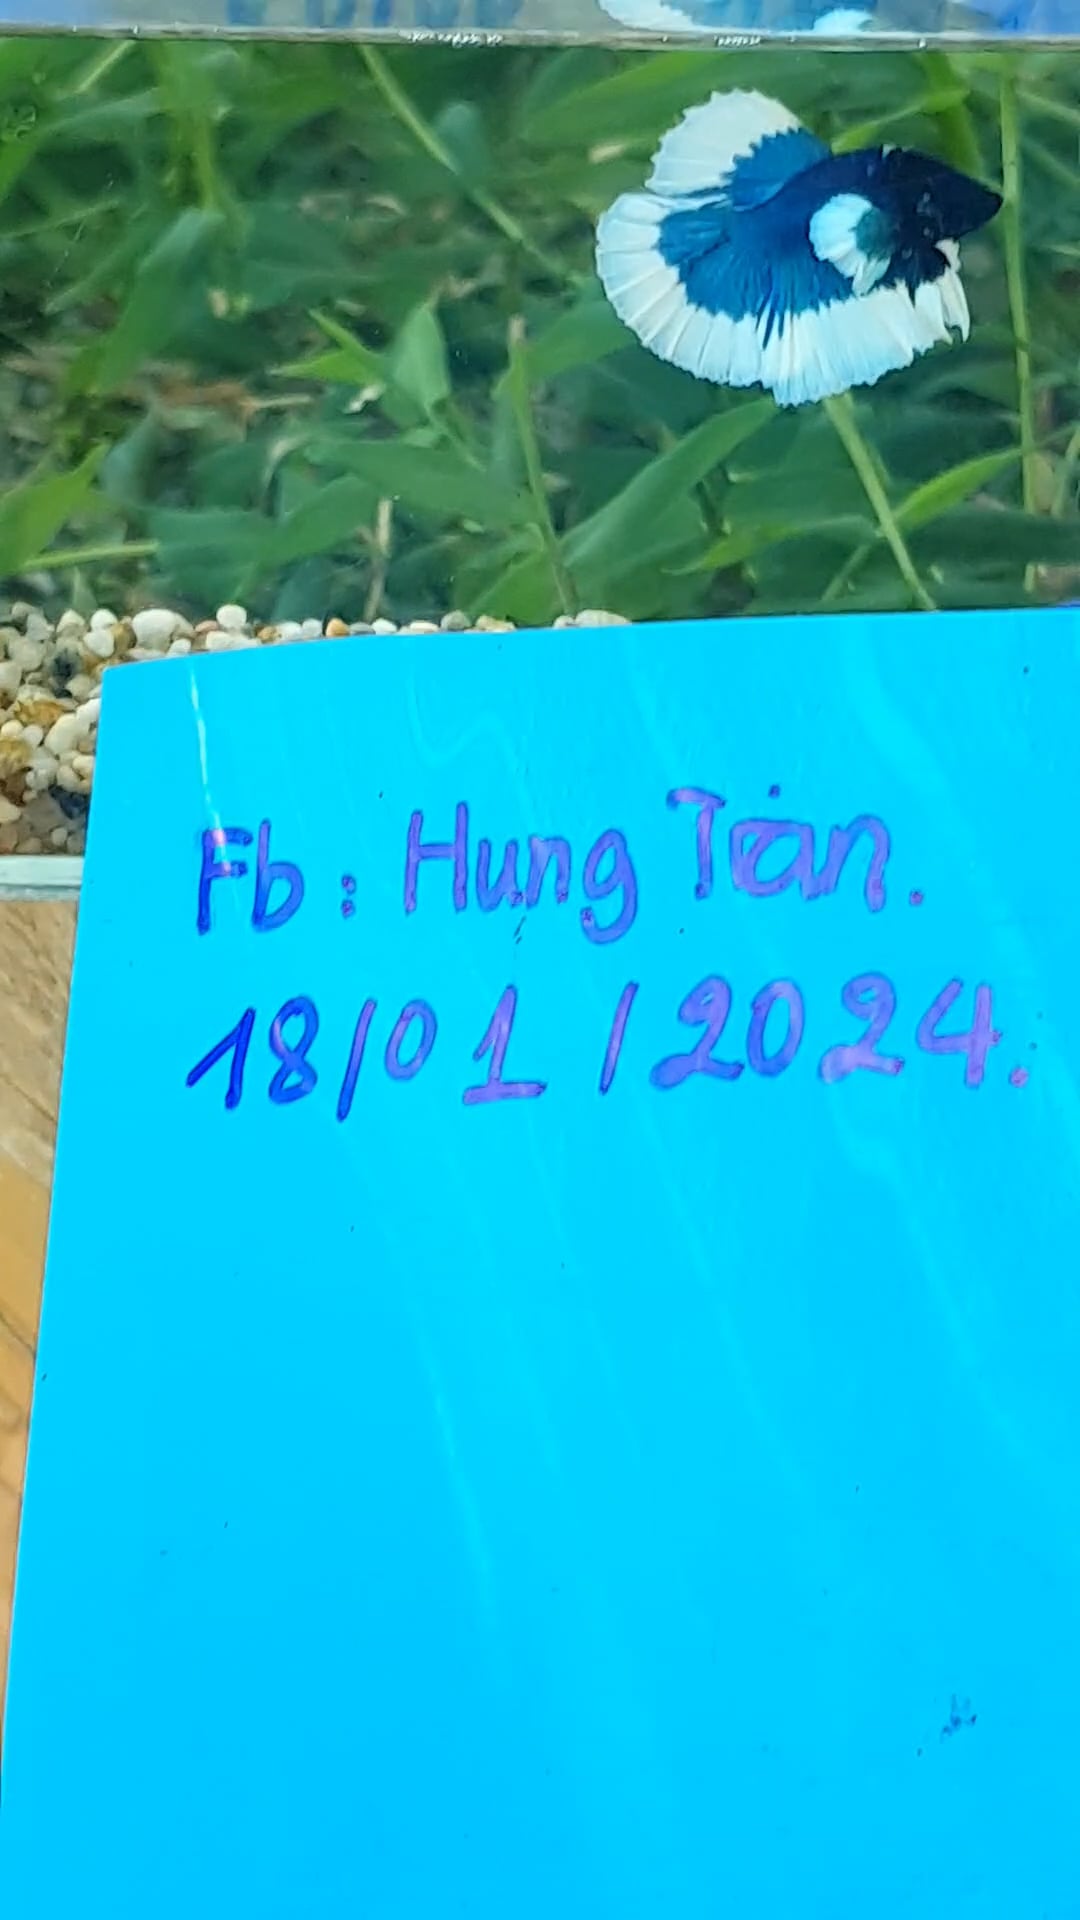 Fb: Hung Tran.
18/01/2024.